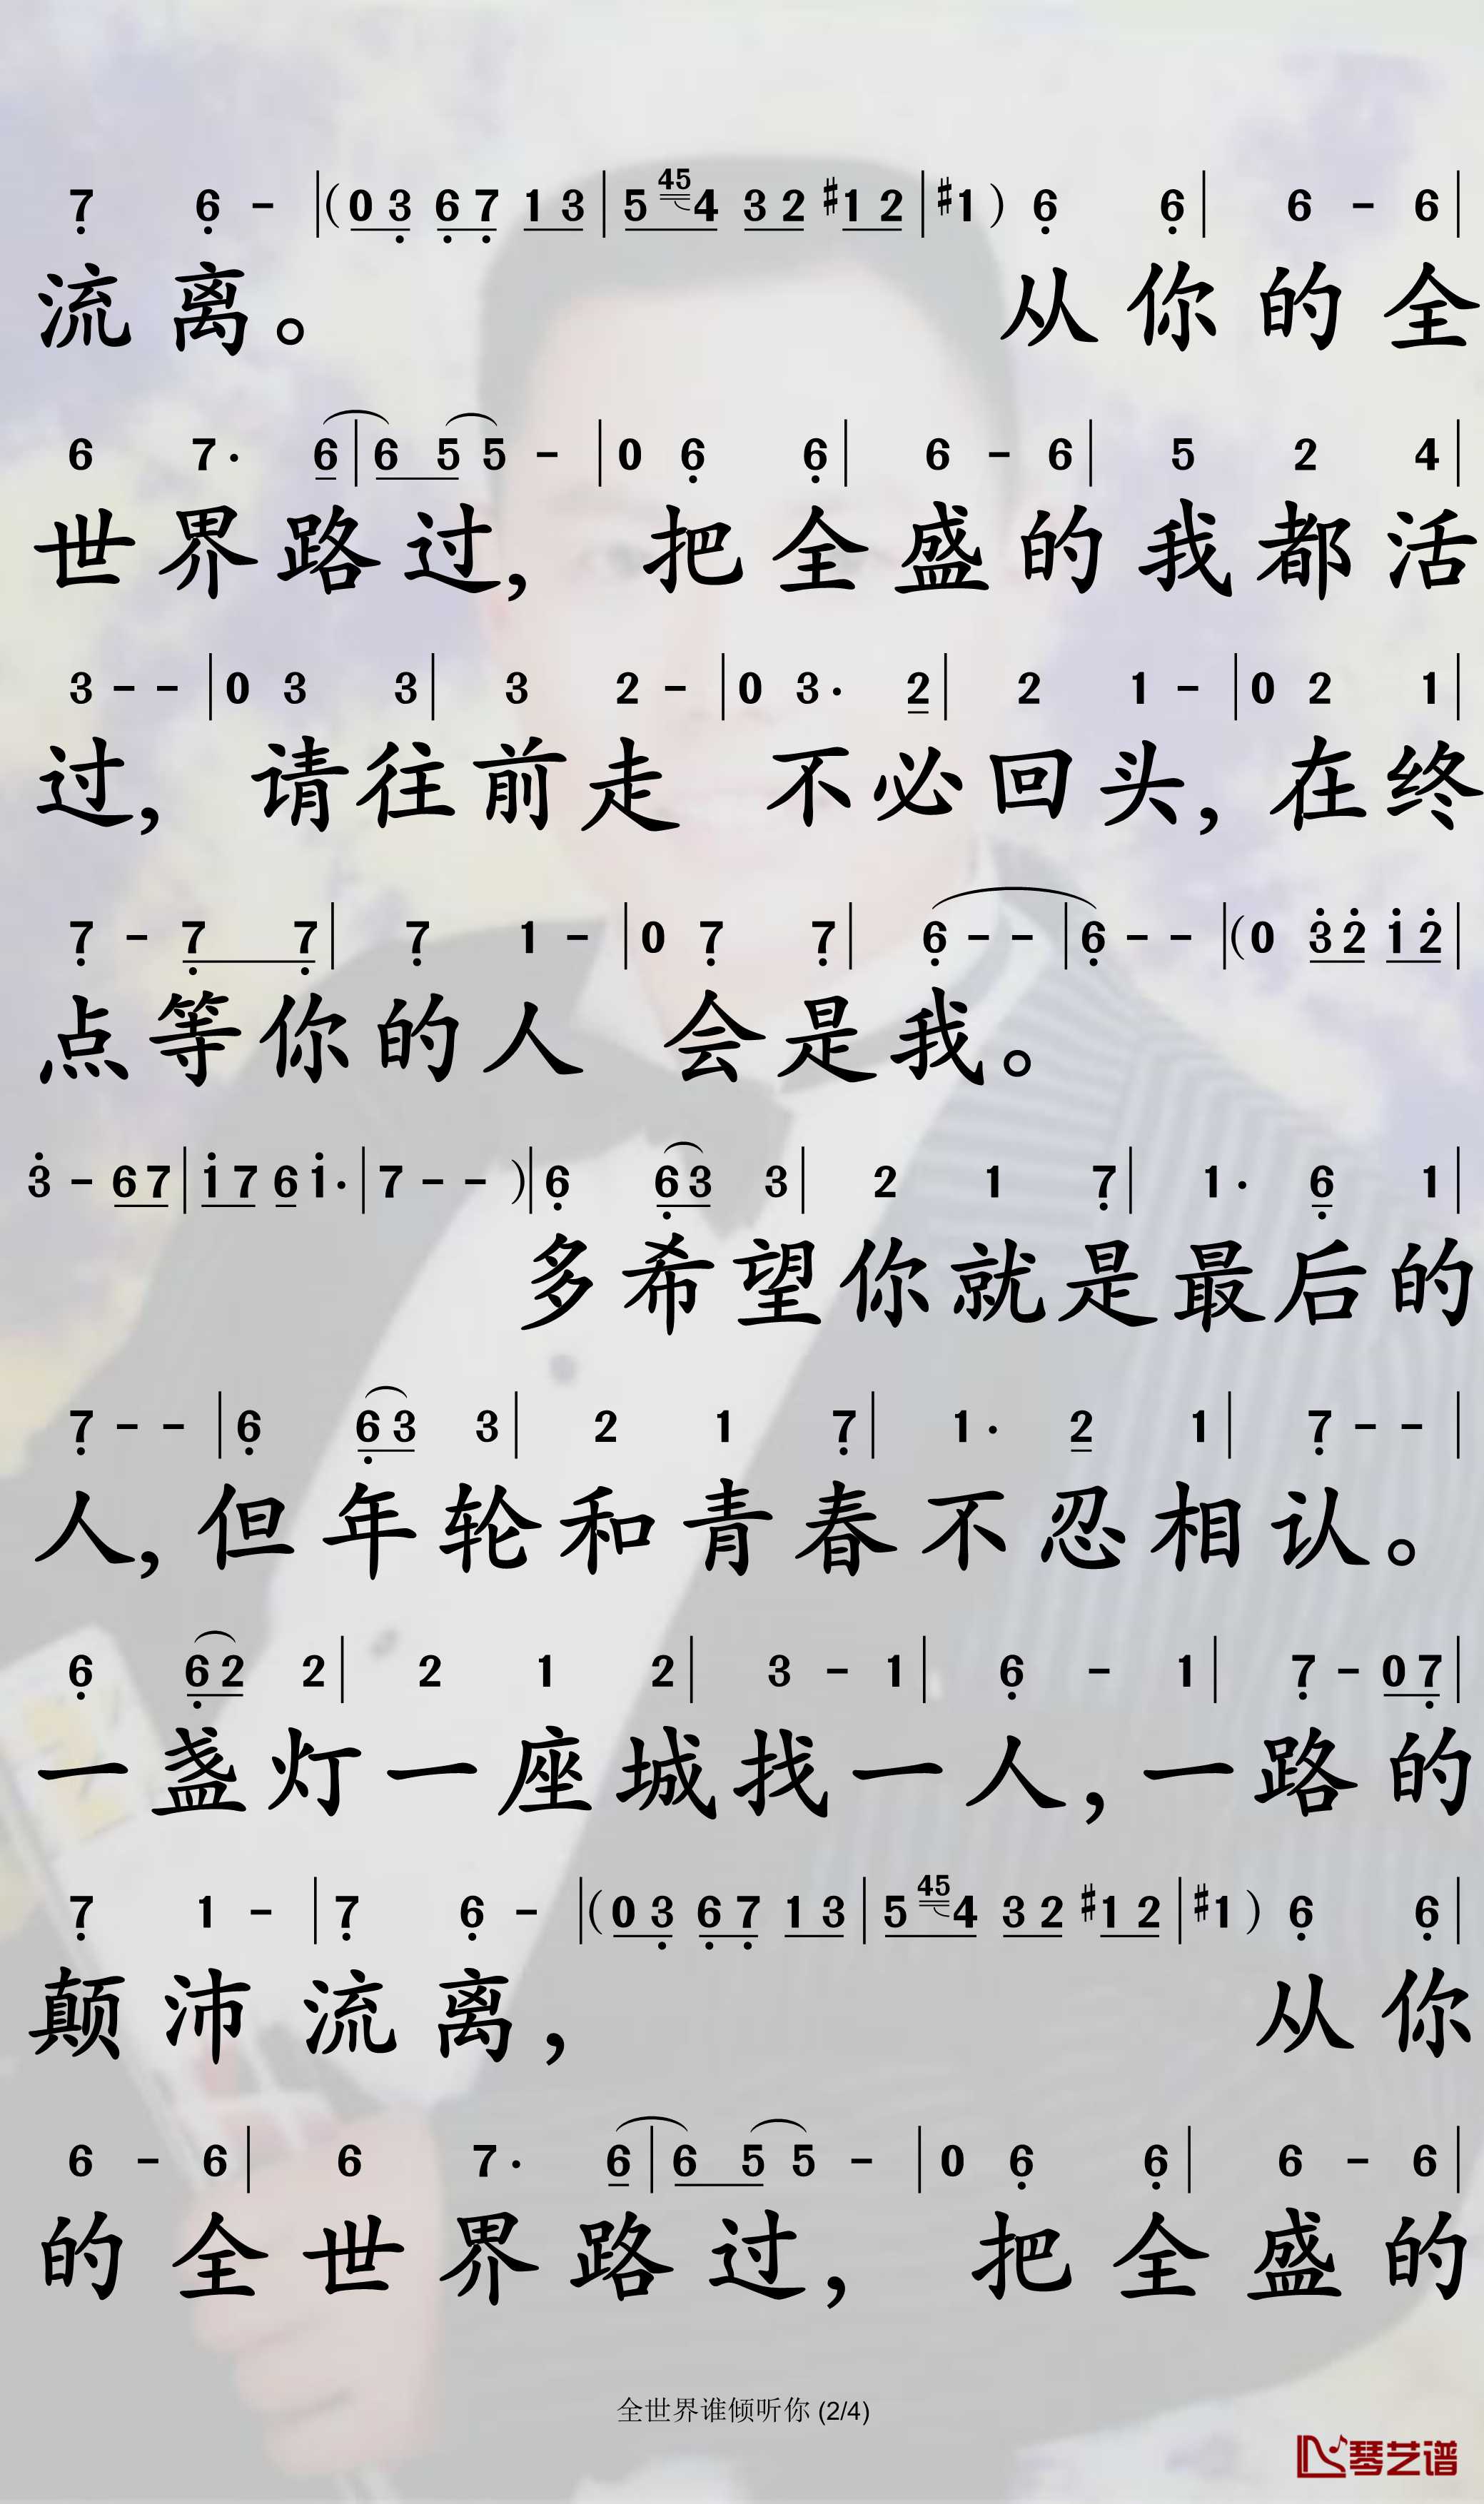 7 6 - |(0 3 6 7 1 3|5 45 4 3 2 #1 2|#1) 6 6| 6 - 6|
流离。 从你的全
6 7· 6|6 5 5 -|0 6 6| 6 - 6| 5 2 4|
世界路过, 把全盛的我都活
3 - -|0 3 3| 3 2 -|0 3· 2| 2 1 -|0 2 1|
过, 请往前走 不必回头, 在终
7 - 7 7| 7 1 -|0 7 7| 6 - -|6 - -|(0 3 2 1 2|
点等你的人 会是我。
3 - 6 7|1 7 6 1·|7 - - )|6 6 3 3| 2 1 7| 1· 6 1|
多希望你就是最后的
7 - -|6 6 3 3| 2 1 7| 1· 2 1| 7 - -|
人, 但年轮和青春不忍相认。
6 6 2 2| 2 1 2| 3 - 1| 6 - 1| 7 - 0 7|
一盏灯一座城找一人, 一路的
7 1 -|7 6 -|(0 3 6 7 1 3|5 45 4 3 2 #1 2|#1) 6 6|
颠沛流离, 从你
6 - 6| 6 7· 6|6 5 5 -|0 6 6| 6 - 6|
的全世界路过, 把全盛的
全世界谁倾听你 (2/4)
琴艺谱